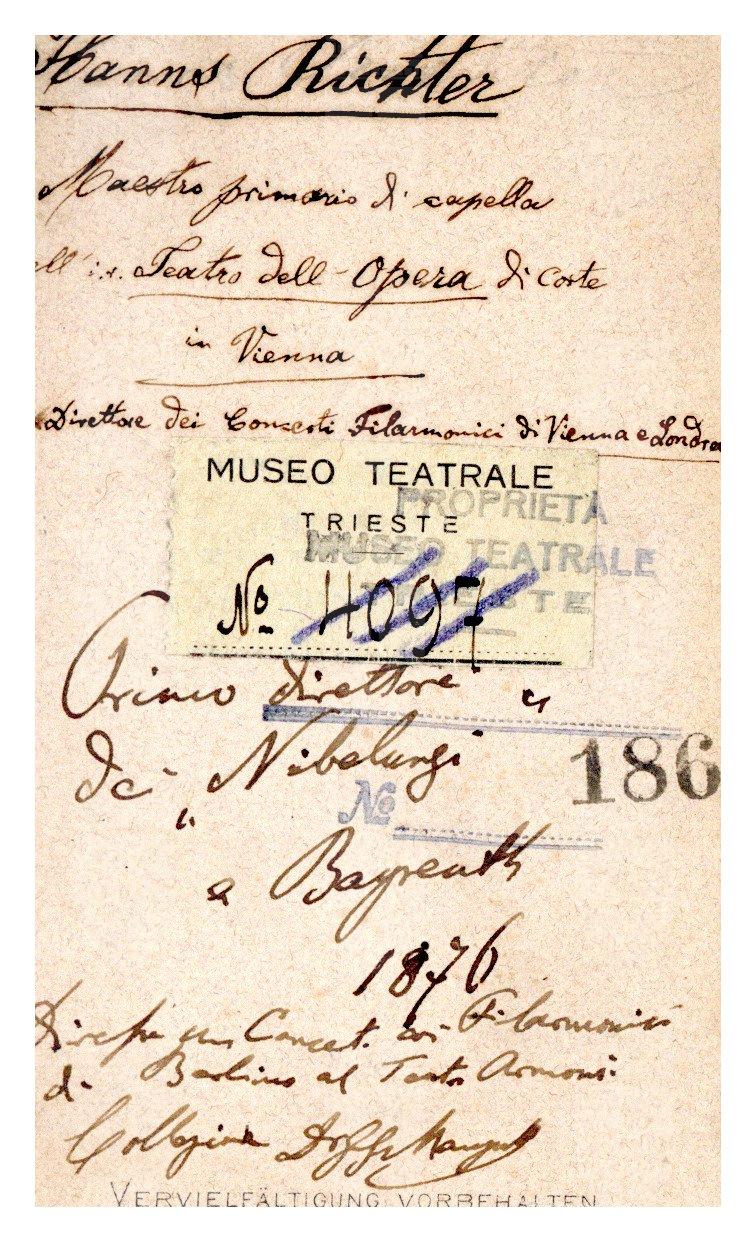 Hanns Richter
Maestro primario di capella
ell' i.r. Teatro dell-Opera di Corte
in Vienna
Direttore dei Concerti Filarmonici di Vienna e Londra
MUSEO TEATRALE
TRIESTE
No 4097
PROPRIETÀ
MUSEO TEATRALE
TRIESTE
Primo direttore
dei "Nibelungi"
186
No
a Bayreuth
1876
un Concert. coi Filarmonici
di Berlino al Teatro Armoni:
VERVIELFÄLTIGUNG VORBEHALTEN